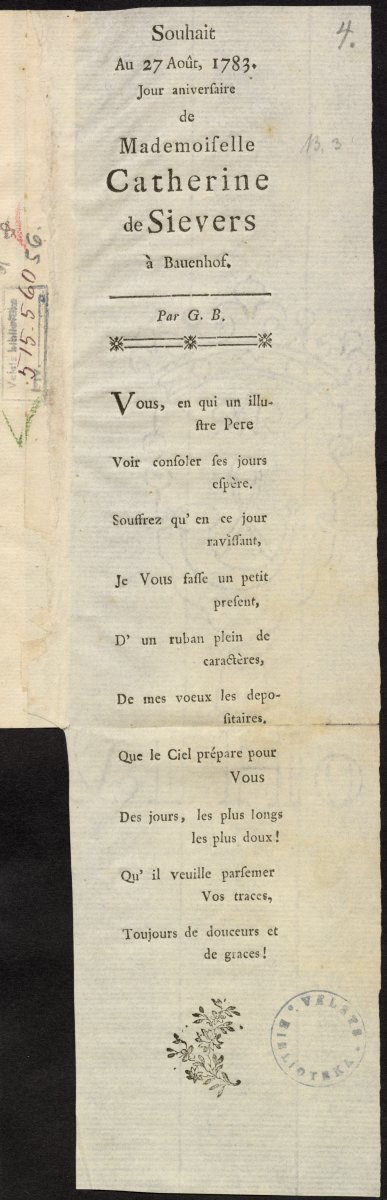 4.
Souhait
Au 27 Août, 1783.
Jour aniverſaire
de
Mademoiſelle
Catherine
de Sievers
à Bauenhof.
13. 3
Par G. B.
Vous, en qui un illu-
ſtre Pere
Voir conſoler ſes jours
eſpère,
Souffrez qu' en ce jour
raviſſant,
Je Vous faſſe un petit
preſent,
D' un ruban plein de
caractères,
De mes voeux les depo-
ſitaires.
Que le Ciel prépare pour
Vous
Des jours, les plus longs
les plus doux!
Qu' il veuille parſemer
Vos traces,
Toujours de douceurs et
de graces!
VALSTS
BIBLIOTEKA
Valsts bibliotēka
515.560
56.